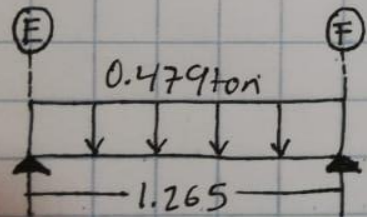 E F
0.479ton
1.265